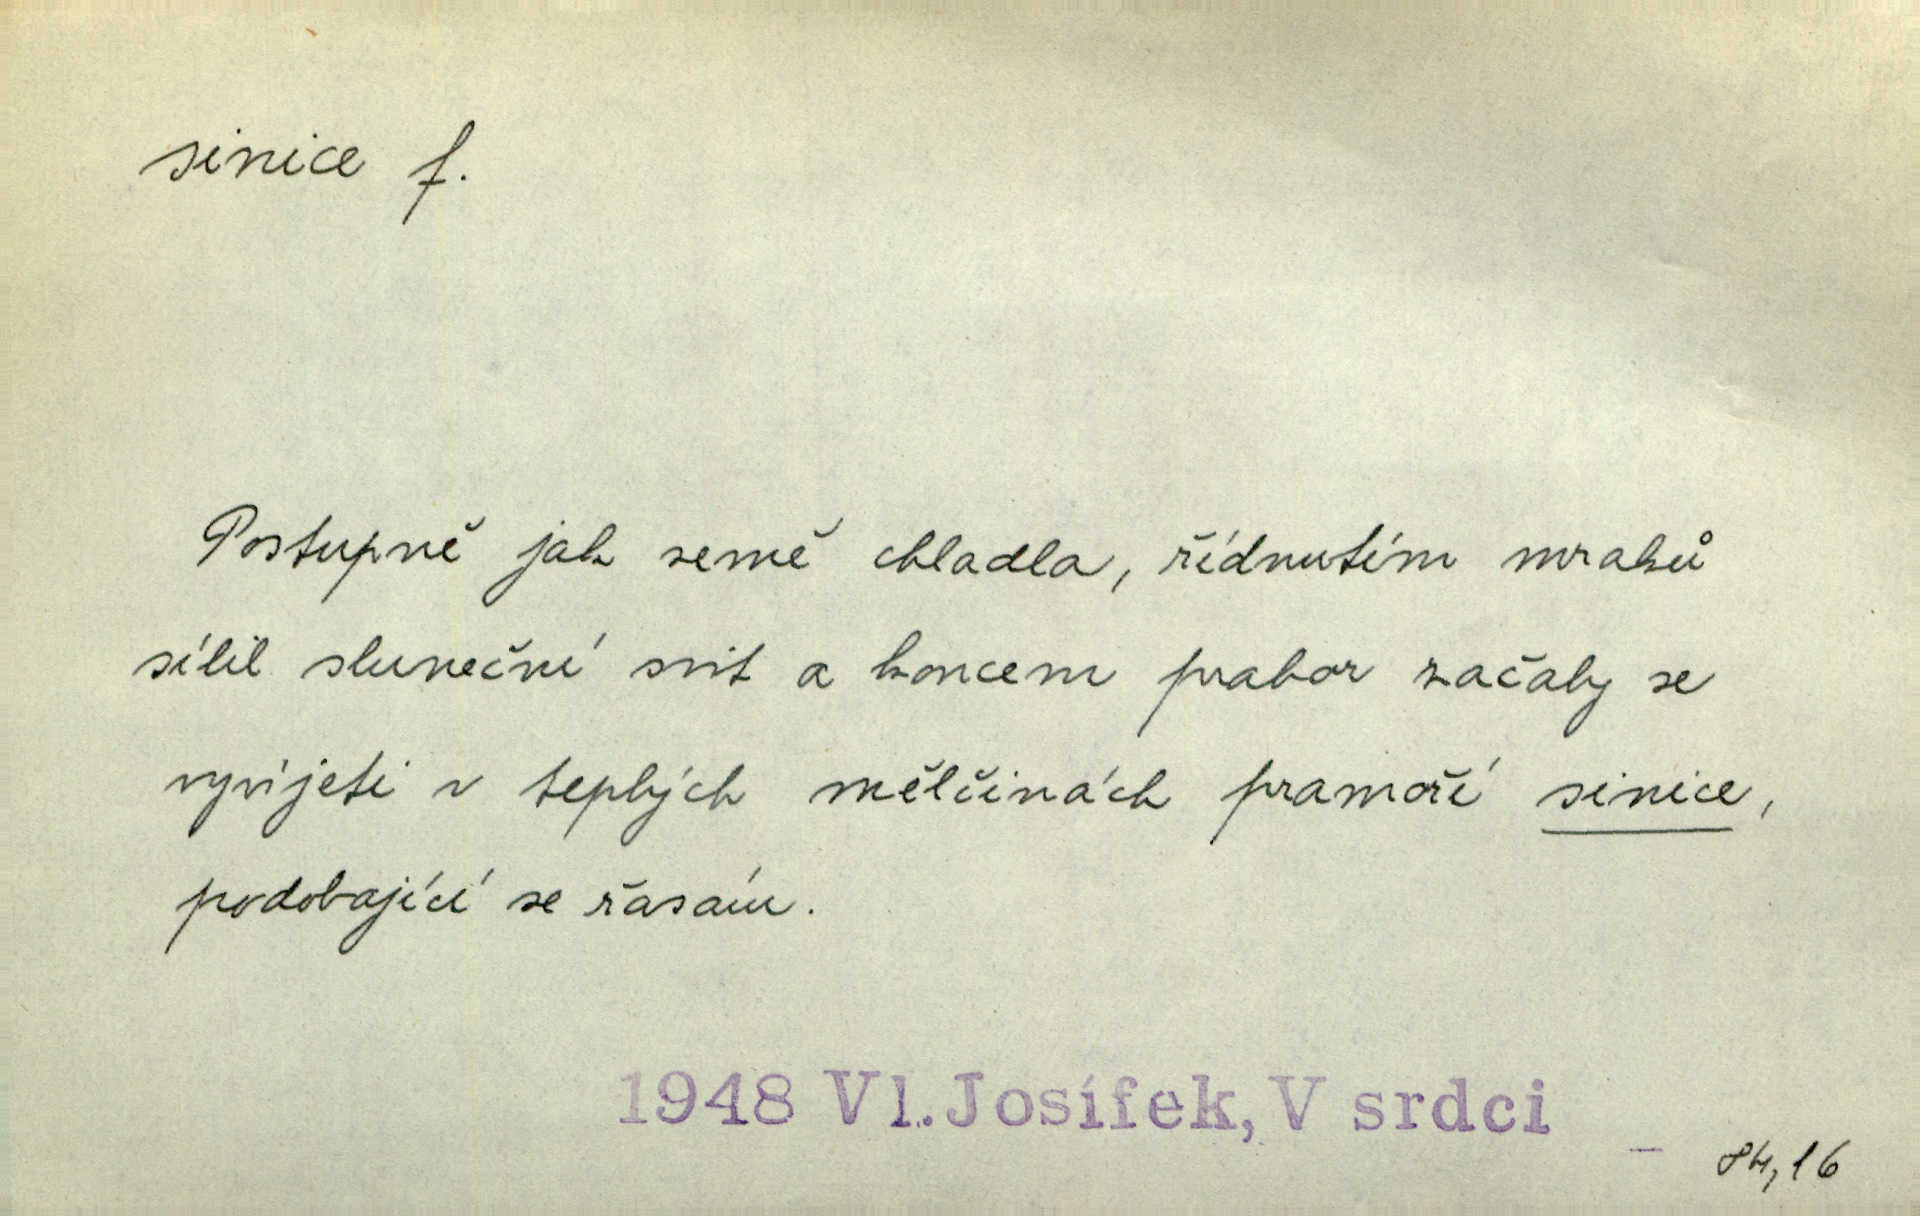 sinice f.
Postupně jak země chladla, řídnutím mraků
sílil sluneční svit a koncem prahor začaly se
vyvíjeti v teplých mělčinách pramoří sinice,
podobající se řasám.
1948 Vl. Josífek, V srdci
84,16